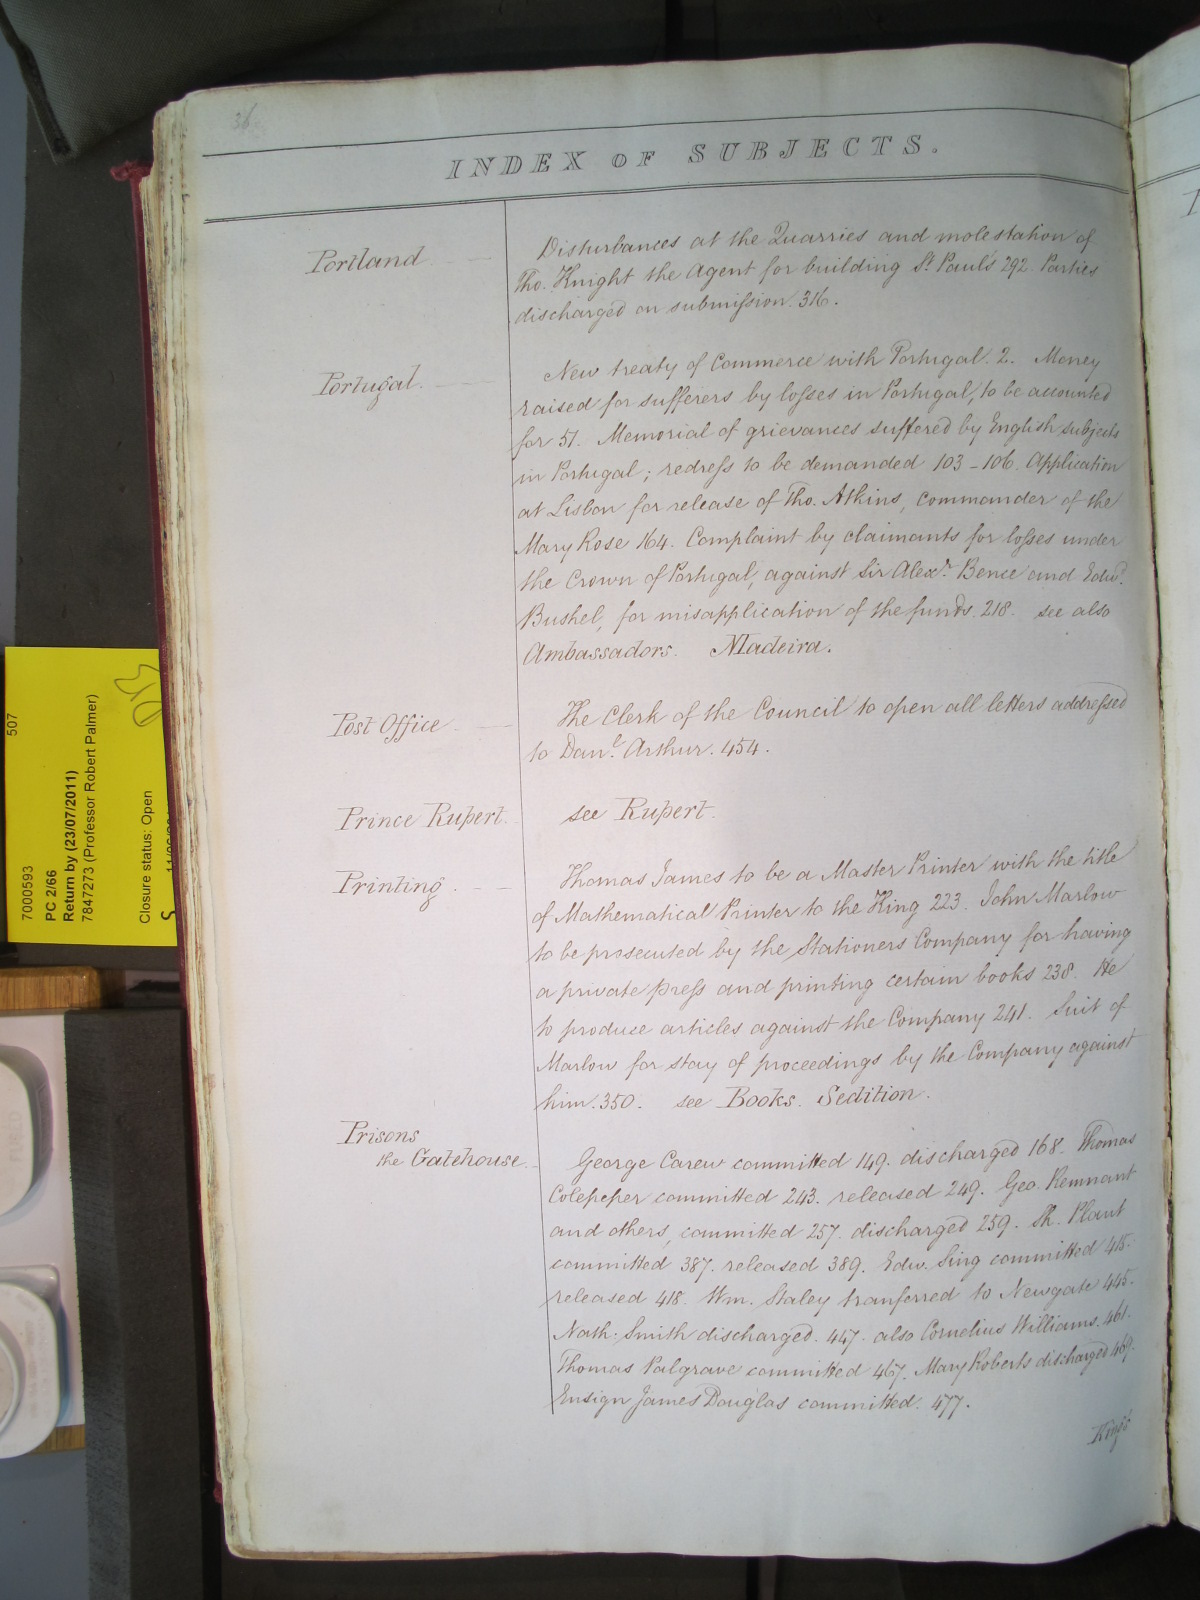 36
INDEX OF SUBJECTS.
Portland
Disturbances at the Quarries and molestation of
Tho. Knight the Agent for building St Paul's 292. Parties
discharged on submifsion. 316.
Portugal.
New treaty of Commerce with Portugal. 2. Money
raised for sufferers by lofses in Portugal, to be accounted
for 51. Memorial of grievances suffered by English subjects
in Portugal; redrefs to be demanded 103-106. Application
at Lisbon for release of Tho. Atkins, commander of the
Mary Rose 164. Complaint by claimants for lofses under
the Crown of Portugal, against Sir Alexr. Bence and Edwd.
Bushel, for misapplication of the funds. 218. see also
Ambassadors. Madeira.
Post Office
The Clerk of the Council to open all letters addrefsed
to Danl. Arthur. 454.
Prince Rupert.
see Rupert.
Printing.
Thomas James to be a Master Printer with the title
of Mathematical Printer to the King 223. John Marlow
to be prosecuted by the Stationers Company for having
a private Prefs and printing certain books 238. He
to produce articles against the Company 241. Suit of
Marlow for stay of proceedings by the Company against
him. 350. see Books. Sedition.
Prisons
the Gatehouse.
George Carew committed 149. discharged 168. Thomas
Colepeper committed 243. released 249. Geo. Remnant
and others, committed 257. discharged 259. Plant
committed 387. released 389. Edw. Sing committed 415.
released 418. Wm. Staley tranferred to Newgate 445.
Nath. Smith discharged. 447. also Cornelius Williams. 461.
Thomas Palgrave committed 467. Mary Roberts discharged 469.
Ensign James Douglas committed. 477.
King's
507
7000593
PC 2/66
Return by (23/07/2011)
7847273 (Professor Robert Palmer)
Closure status: Open